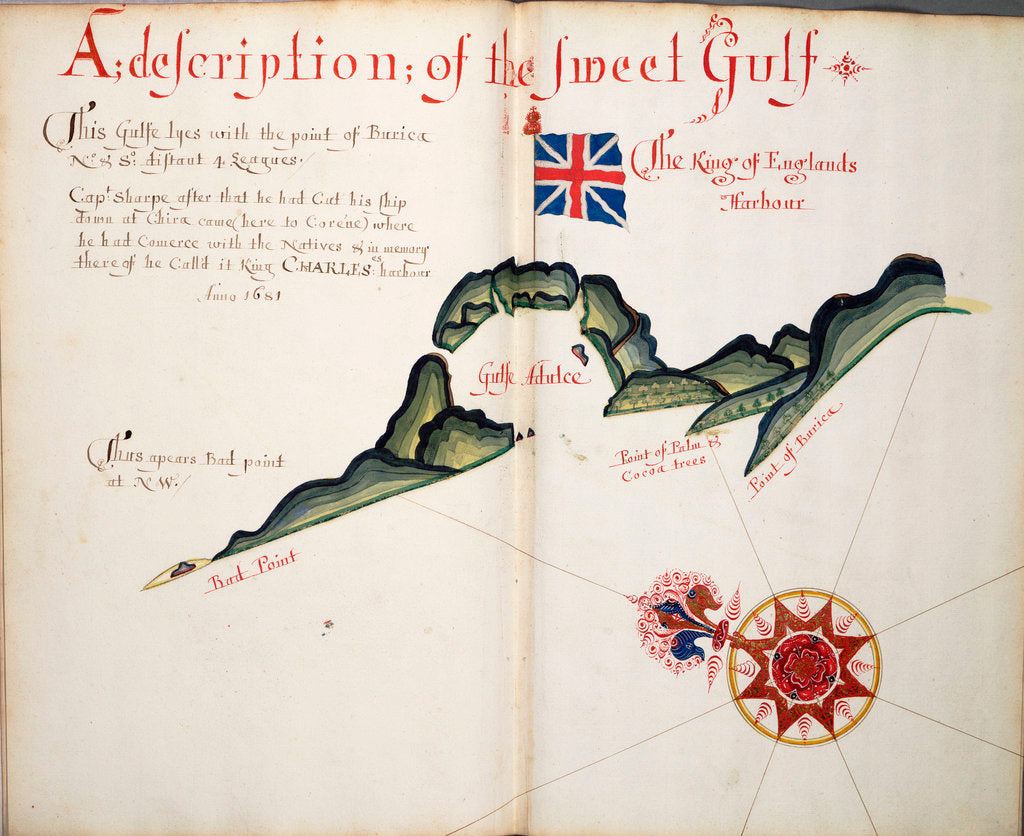 A; description; of the sweet Gulf
This Gulfe lyes with the point of Burica
No: & So: distant 4 Leagues:/
Capt: Sharpe after that he had Cut his ship
down at Chira came (here to Corene) where
he had Comerce with the Natives & in memory
there of he Call'd it King CHARLES:es harbour
Anno 1681
The King of Englands
Harbour
Gulfe Adulce
Thus apears Bad point
at NW:/
Point of Palm &
Cocoa trees
Point of Burica
Bad Point